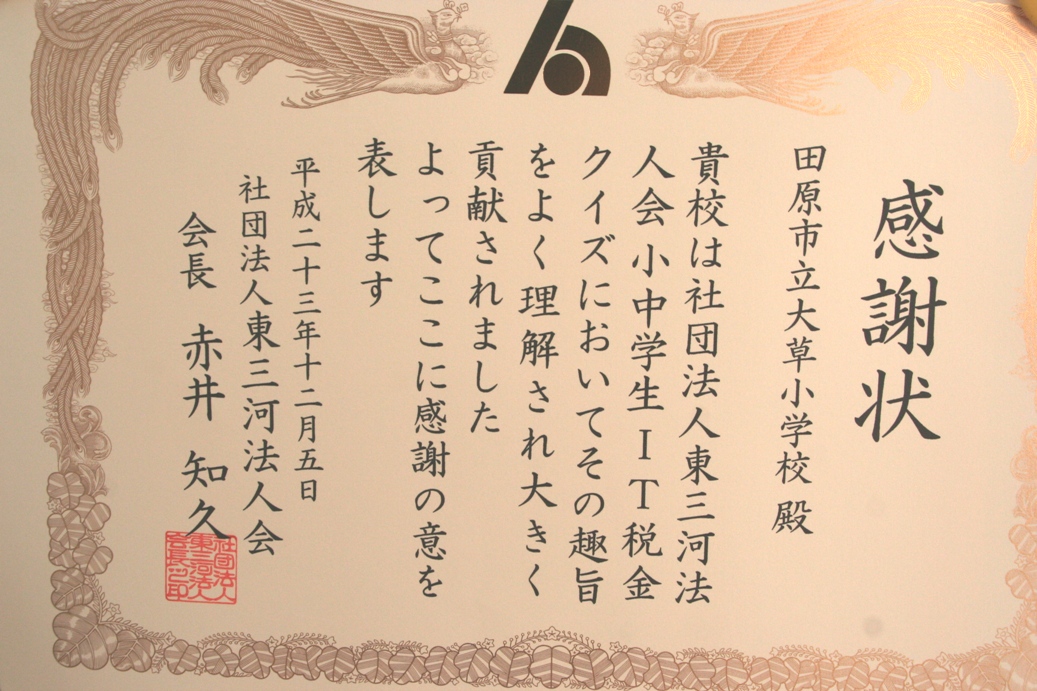 感謝状
田原市立大草小学校 殿
貴校は社団法人東三河法
人会小中学生ＩＴ税金
クイズにおいてその趣旨
をよく理解され大きく
貢献されました
よってここに感謝の意を
表します
平成二十三年十二月五日
社団法人東三河法人会
会長 赤井 知久
社団法人
東三河法人
会長之印